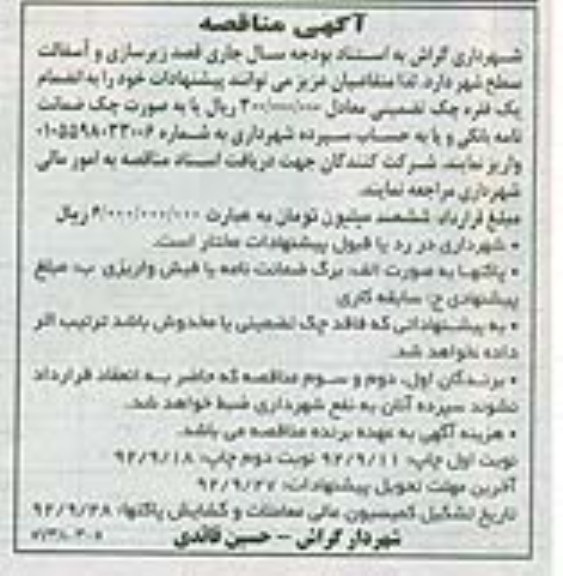 آگهی مناقصه
شهرداری گراش به استناد بودجه سال جاری قصد زیرسازی و آسفالت
سطح شهر دارد. لذا متقاضیان عزیز می توانند پیشنهادات خود را به انضمام
یک فقره چک تضمینی معادل ۳۰۰/۰۰۰/۰۰۰ ریال یا به صورت چک ضمانت
نامه بانکی و یا به حساب سپرده شهرداری به شماره ۰۱۰۵۵۹۸۰۳۳۰۰۶
واریز نمایند. شرکت کنندگان جهت دریافت اسناد مناقصه به امور مالی
شهرداری مراجعه نمایند.
مبلغ قرارداد: ششصد میلیون تومان به عبارت ۶/۰۰۰/۰۰۰/۰۰۰ ریال
• شهرداری در رد یا قبول پیشنهادات مختار است.
• پاکتها به صورت الف: برگ ضمانت نامه یا فیش واریزی ب: مبلغ
پیشنهادی ج: سابقه کاری
• به پیشنهاداتی که فاقد چک تضمینی یا مخدوش باشد ترتیب اثر
داده نخواهد شد.
• برندگان اول، دوم و سوم مناقصه که حاضر به انعقاد قرارداد
نشوند سپرده آنان به نفع شهرداری ضبط خواهد شد.
• هزینه آگهی به عهده برنده مناقصه می باشد.
نوبت اول چاپ: ۹۲/۹/۱۱ نوبت دوم چاپ: ۹۲/۹/۱۸
آخرین مهلت تحویل پیشنهادات: ۹۲/۹/۲۷
تاریخ تشکیل کمیسیون عالی معاملات و گشایش پاکتها: ۹۲/۹/۲۸
شهردار گراش – حسین قائدی